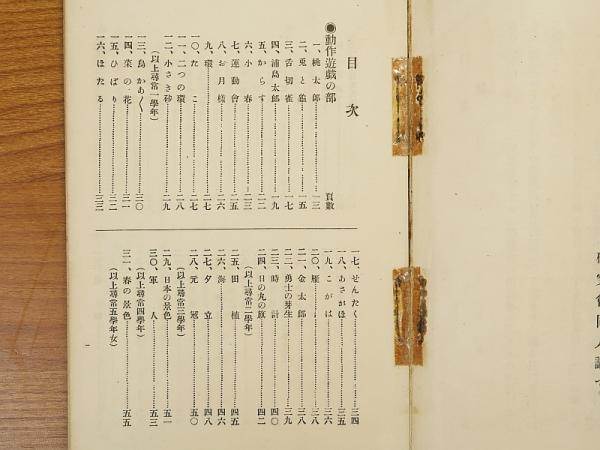 目次
●動作遊戯の部
頁數
一、桃太郎……一三
二、兎と龜……一五
三、舌切雀……一七
四、浦島太郎……一九
五、からす……二二
六、小春……二三
七、運動會……二五
八、お月樣……二六
九、環……二七
一〇、たこ……二七
一一、二つの環……二八
一二、小さき砂……二九
（以上尋常一學年）
一三、烏かあ〱……三〇
一四、菜の花……三一
一五、ひばり……三二
一六、ほたる……三三
一七、せんたく……三四
一八、あさがほ……三五
一九、こがは……三六
二〇、雁……三八
二一、金太郎……三八
二二、勇士の芽生……三九
二三、時計……四〇
二四、日の丸の旗……四二
（以上尋常二學年）
二五、田植……四五
二六、海……四六
二七、夕立……四八
二八、元冦……五〇
（以上尋常三學年）
二九、日本の景色……五一
三〇、軍人……五三
（以上尋常四學年）
三一、春の景色……五五
（以上尋常五學年女）
一